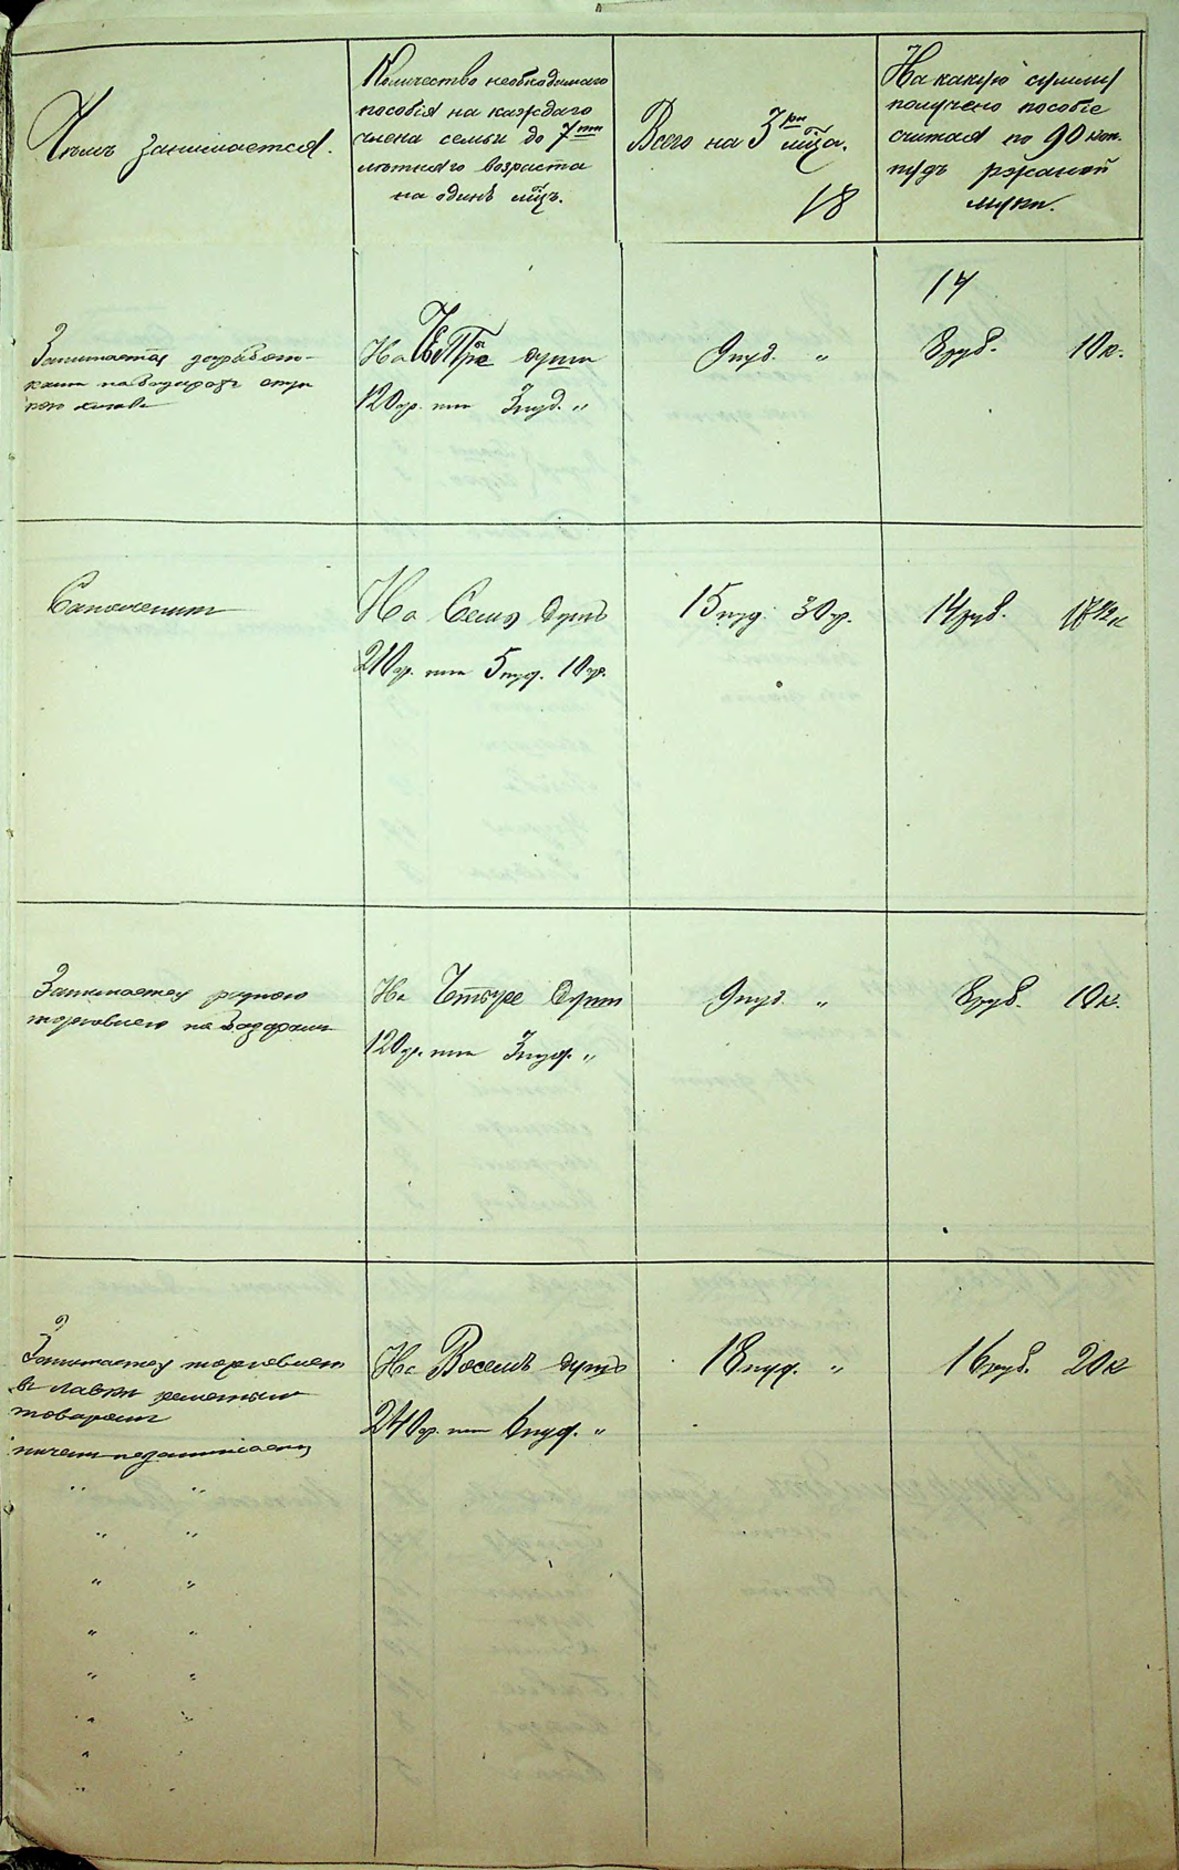 Чѣмъ занимается.
Количество необходимаго
пособія на каждаго
члена семьи до 7ми
лѣтняго возраста
на одинъ м-цъ.
Всего на 3ри м-ца.
18
На какую сумму
получено пособіе
считая по 90 коп.
пудъ ржаной
муки.
14
Занимается
На Четыре души
120 ф. или 3 пуд. "
9 пуд. "
8 руб. 10 к.
Сапожникъ
На Семь душъ
210 ф. или 5 пуд. 10 ф.
15 пуд. 30 ф.
14 руб.
Занимается
торговлею на базарѣ
На Четыре души
120 ф. или 3 пуд. "
9 пуд. "
8 руб. 10 к.
Занимается торговлею
въ лавкѣ
товаромъ
ничемъ незанимается
На Восемь душъ
240 ф. или 6 пуд. "
18 пуд. "
16 руб. 20 к
" "
" "
" "
" "
" "
" "
" "
" "